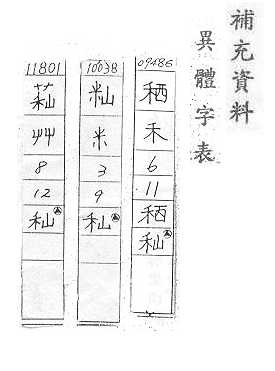 補充資料
異體字表
09486
禾
6
11
秈
10038
籼
米
3
9
秈
11801
艸
8
12
秈